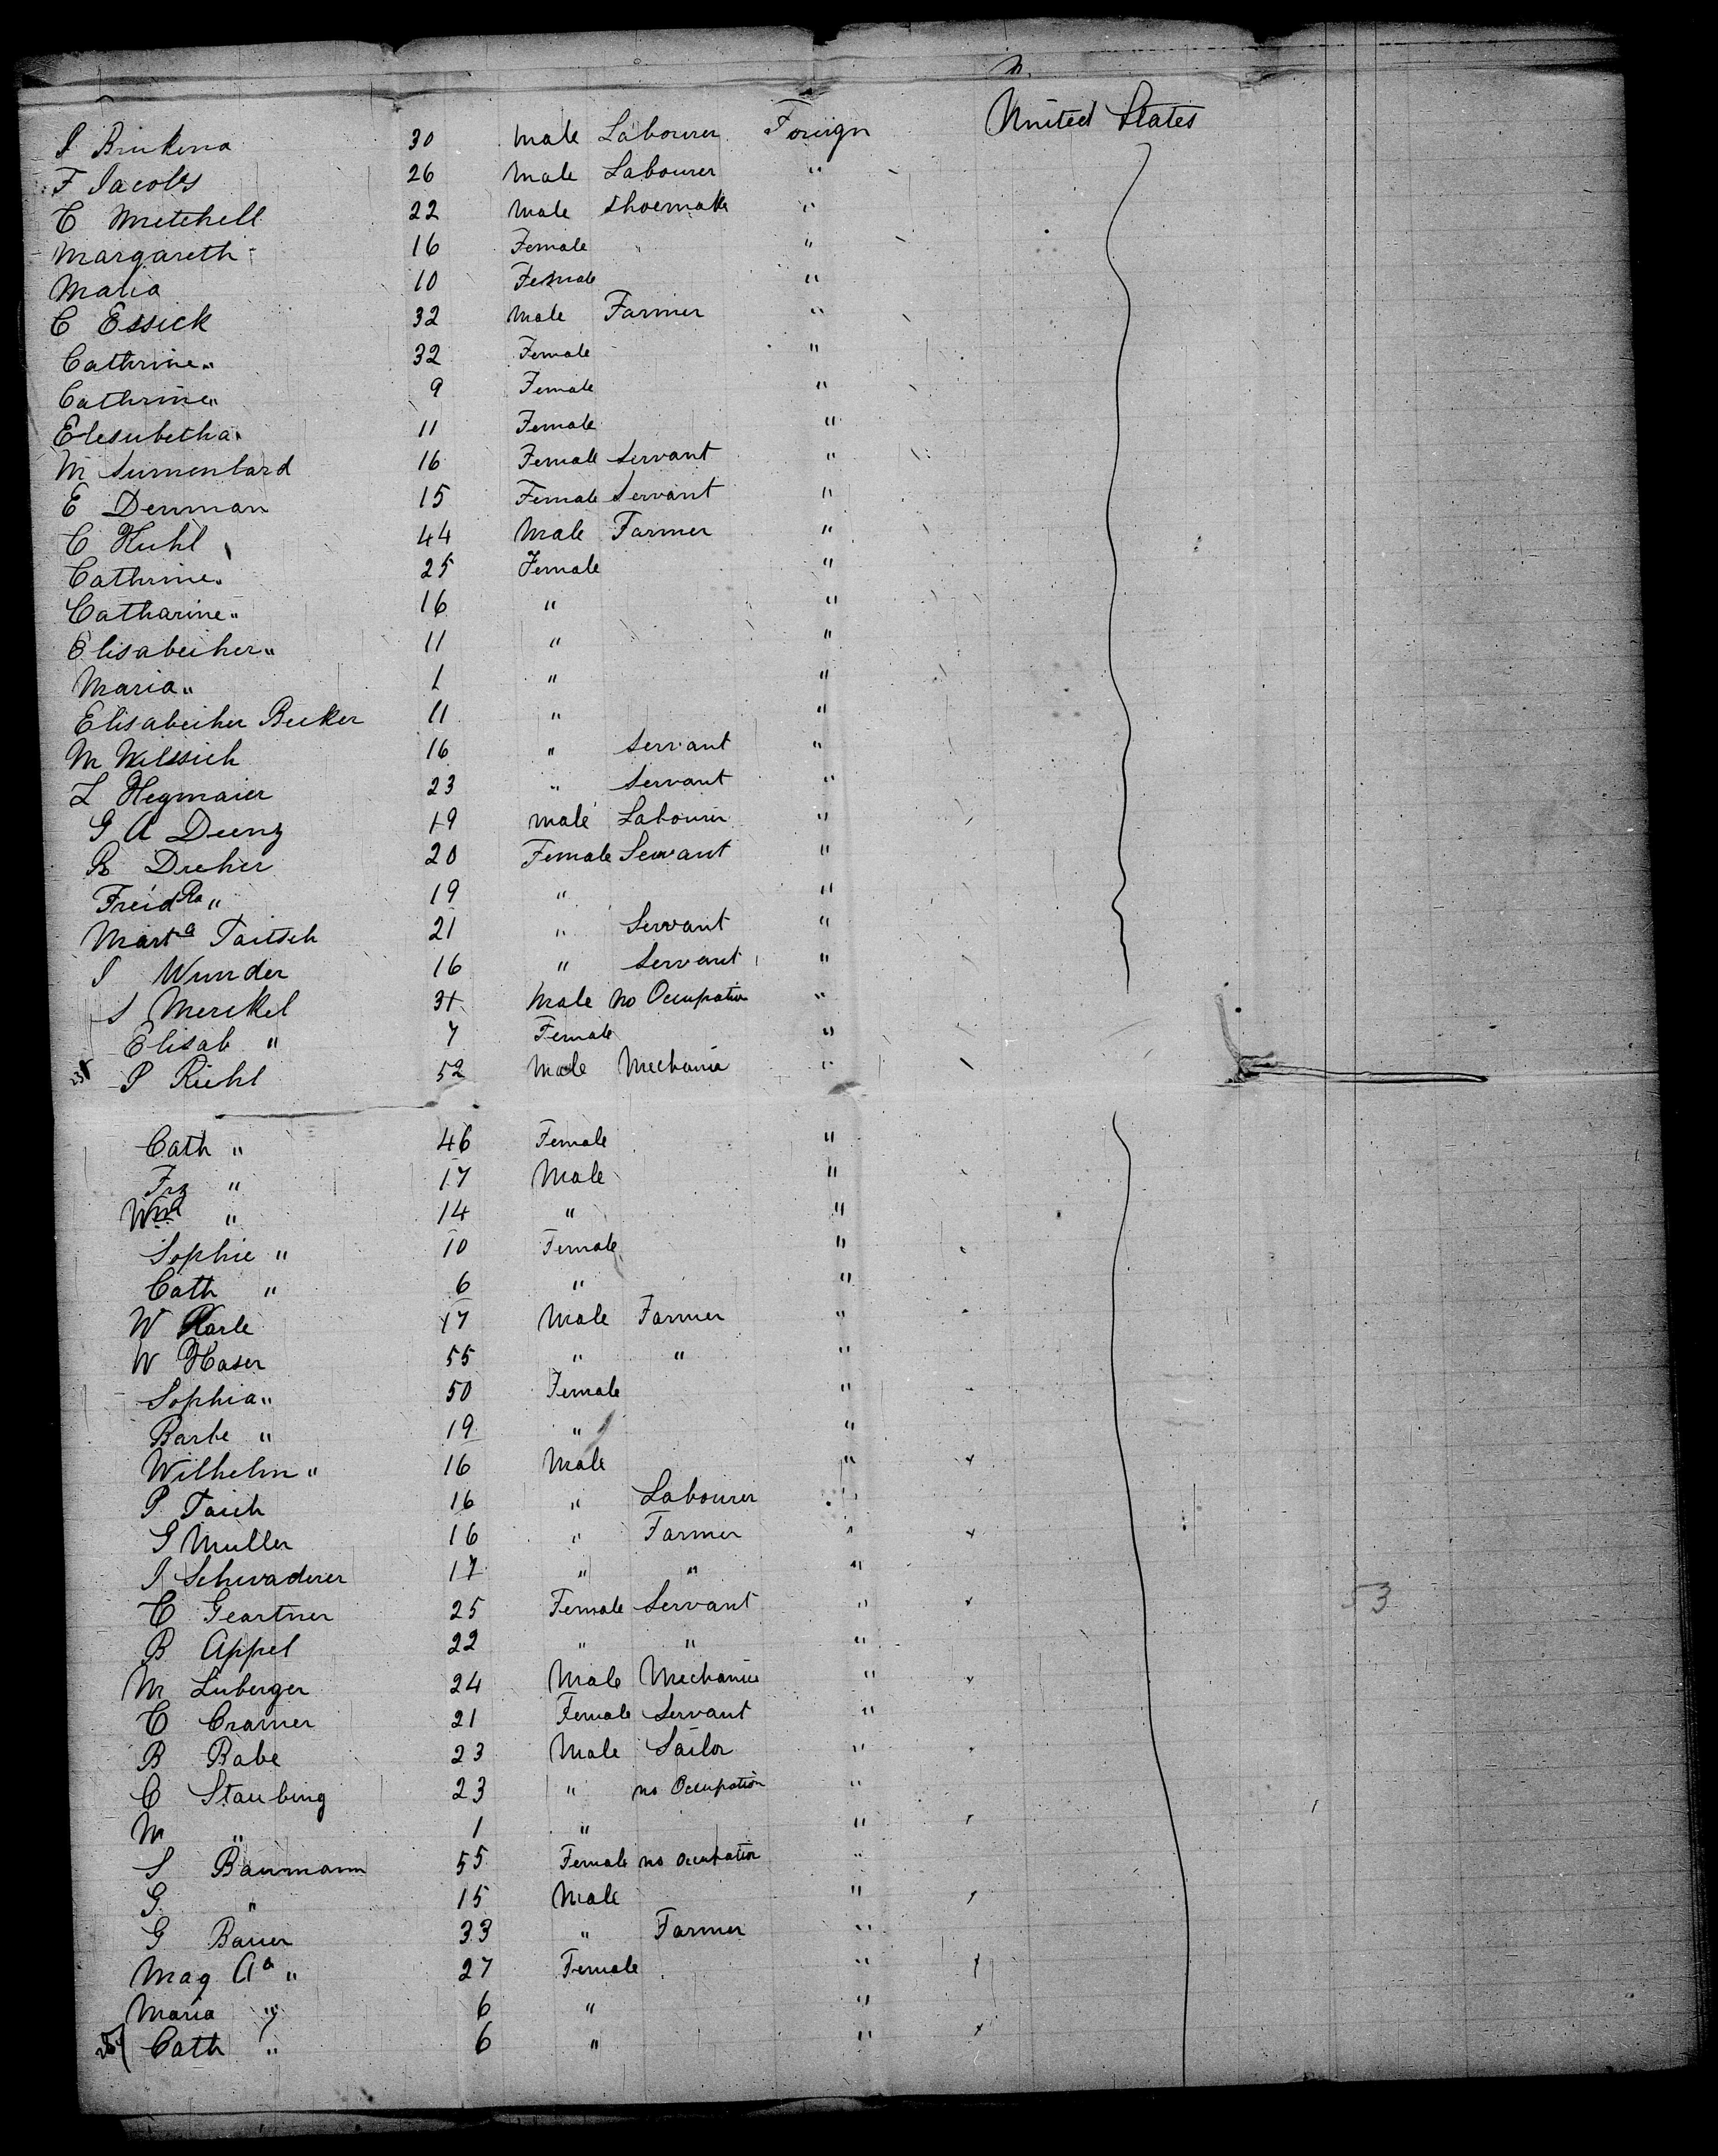 United States
I Brinkena 30 Male Labourer Foreign
F Jacobs 26 Male Labourer "
C Mitchell 22 Male Shoemaker "
Margareth 16 Female " "
Maria 10 Female "
C Essick 32 Male Farmer "
Cathrine " 32 Female "
Cathrine " 9 Female "
Elesubetha " 11 Female "
M 16 Female Servant "
E Denman 15 Female Servant "
C Huhl 44 Male Farmer "
Cathrine " 25 Female "
Catharine " 16 " "
Elisabeiher " 11 " "
Maria " 1 " "
Elisabeiher Becker 11 " "
M 16 " Servant "
L Hegmaier 23 " Servant "
G A Deenz 19 Male Labourer "
R Dreher 20 Female Servant "
Freid Ra " 19 " "
Mart a Taitsch 21 " Servant "
I Wunder 16 " Servant "
S Merckel 31 Male no Occupation "
Elisab " 7 Female "
P Riehl 52 Male Mechanic "
Cath " 46 Female "
Frz " 17 Male "
Wm " 14 " "
Sophie " 10 Female "
Cath " 6 " "
W Karle 17 Male Farmer "
W Haser 55 " " "
Sophia " 50 Female "
Barbe " 19 " "
Wilhelm " 16 Male "
P Taich 16 " Labourer "
G Muller 16 " Farmer "
I Schwaderer 17 " " "
C Geartner 25 Female Servant "
53
B Appel 22 " " "
M Liuberger 24 Male Mechanic "
C Cramer 21 Female Servant "
B Babe 23 Male Sailor "
C Staubing 23 " no Occupation "
M " 1 " "
S Baumann 55 Female no Occupation "
G " 15 Male "
G Bauer 33 " Farmer "
Mag Aa " 27 Female "
Maria " 6 " "
Cath " 6 " "